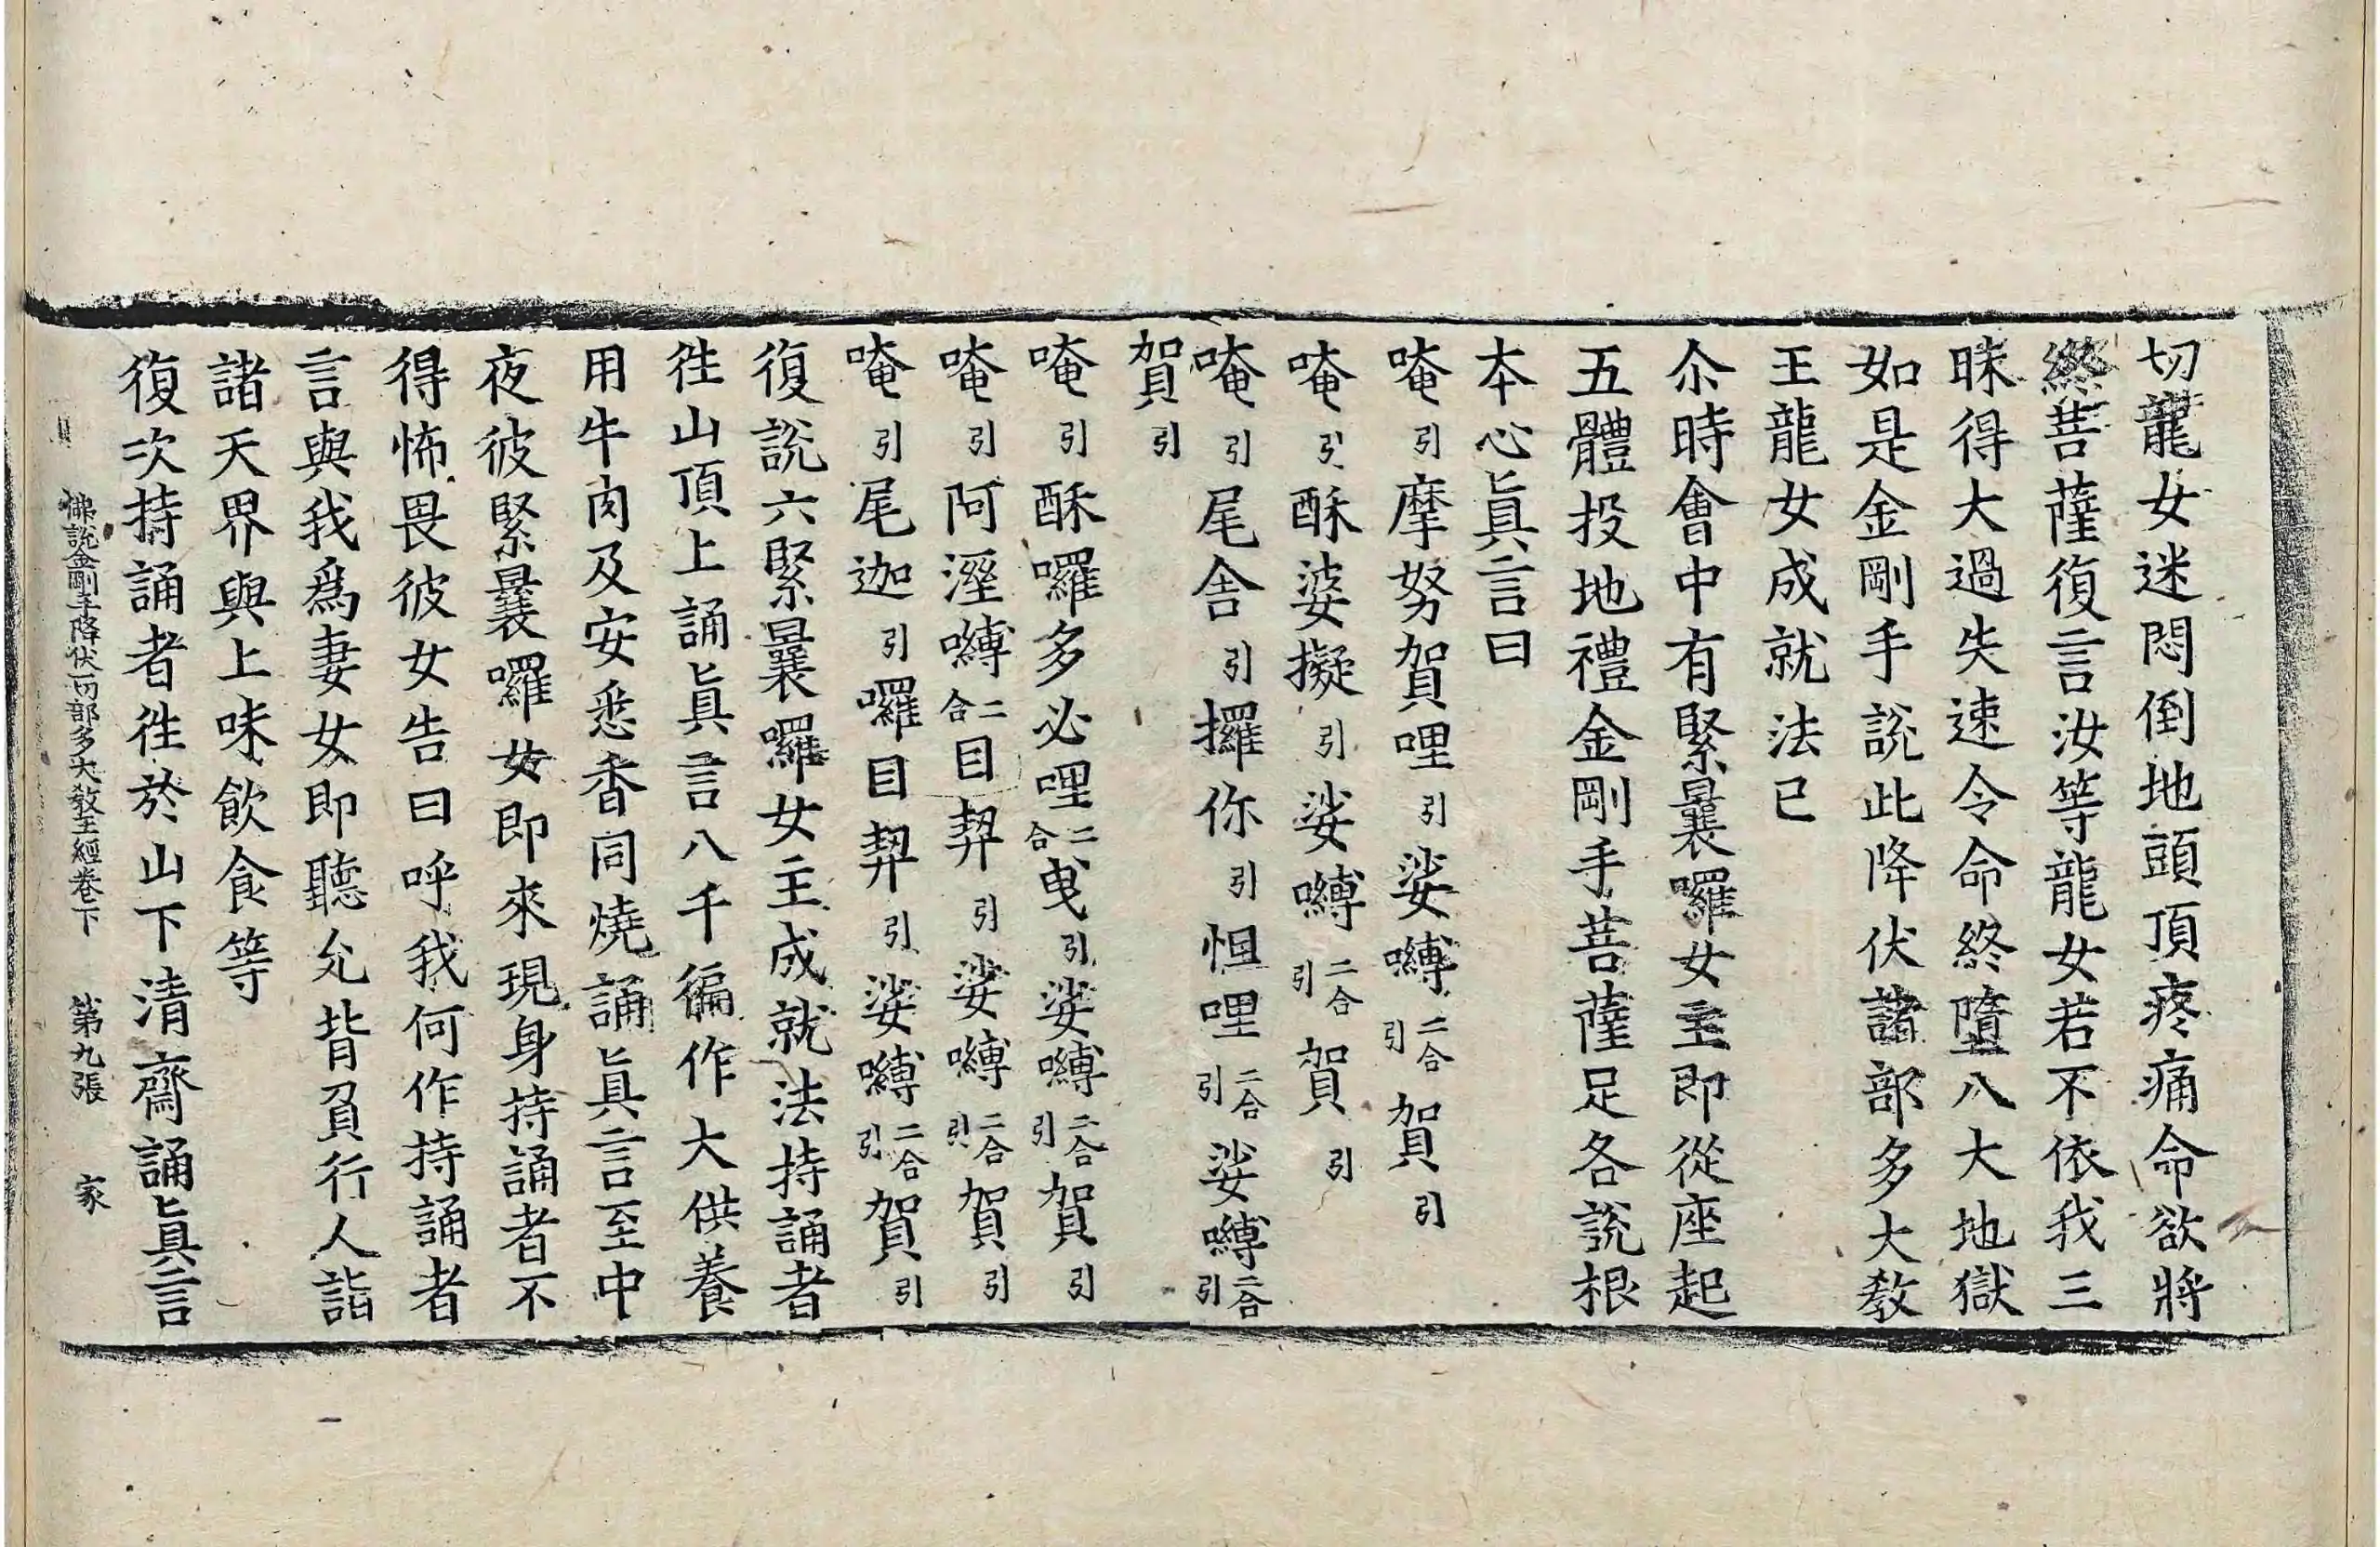 切龍女迷悶倒地頭頂疼痛命欲將
終菩薩復言汝等龍女若不依我三
昧得大過失速令命終墮八大地獄
如是金剛手說此降伏諸部多大教
王龍女成就法已
尒時會中有緊曩囉女主即從座起
五體投地禮金剛手菩薩足各說根
本心眞言曰
唵引摩努賀哩引娑嚩二合引賀引
唵引酥婆擬引娑嚩二合引賀引
唵引尾舍引攞你引怛哩二合引娑嚩二合引
賀引
唵引酥囉多必哩二合曳引娑嚩二合引賀引
唵引阿溼嚩二合目契引娑嚩二合引賀引
唵引尾迦引囉目契引娑嚩二合引賀引
復說六緊曩囉女主成就法持誦者
徃山頂上誦眞言八千徧作大供養
用牛肉及安悉香同燒誦眞言至中
夜彼緊曩囉女即來現身持誦者不
得怖畏彼女告曰呼我何作持誦者
言與我爲妻女即聽允背負行人詣
諸天界與上味飲食等
復次持誦者徃於山下清齋誦眞言
佛說金剛手降伏一切部多大教王經卷下　第九張　家